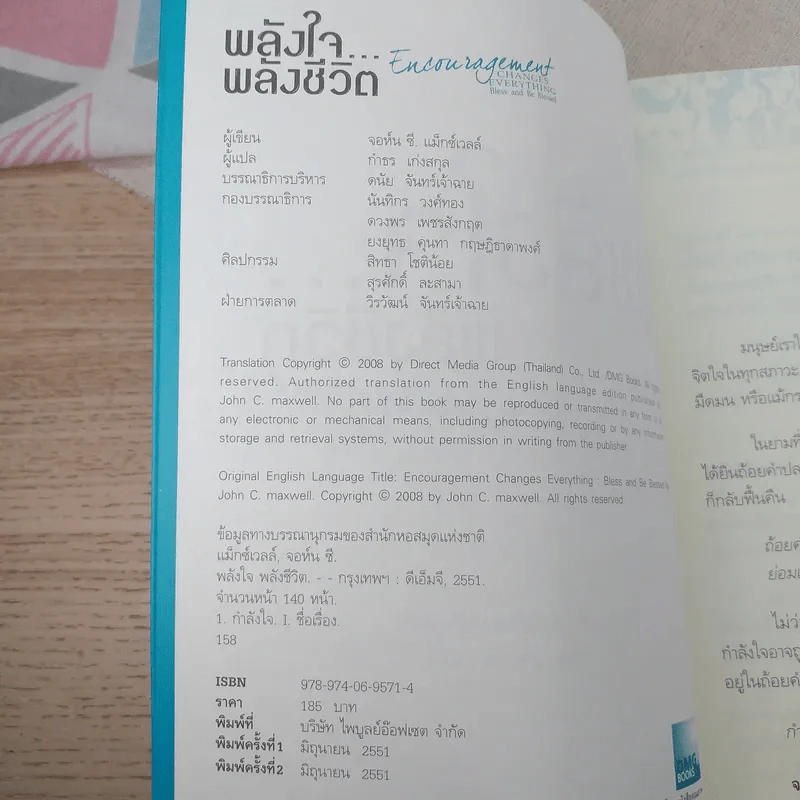 พลังใจ...
พลังชีวิต
Encouragement
CHANGES
EVERYTHING
Bless and Be Blessed
ผู้เขียน จอห์น ซี. แม็กซ์เวลล์
ผู้แปล กำธร เก่งสกุล
บรรณาธิการบริหาร ดนัย จันทร์เจ้าฉาย
กองบรรณาธิการ นันทิกร วงค์ทอง
ดวงพร เพชรสังกฤต
ยงยุทธ คุนทา กฤษฎิธาดาพงศ์
ศิลปกรรม สิทธา โชติน้อย
สุรศักดิ์ ละสามา
ฝ่ายการตลาด วิรวัฒน์ จันทร์เจ้าฉาย
Translation Copyright © 2008 by Direct Media Group (Thailand) Co., Ltd /DMG Books. All rights
reserved. Authorized translation from the English language edition published by
John C. maxwell. No part of this book may be reproduced or transmitted in any form or by
any electronic or mechanical means, including photocopying, recording or by any information
storage and retrieval systems, without permission in writing from the publisher.
Original English Language Title: Encouragement Changes Everything : Bless and Be Blessed by
John C. maxwell. Copyright © 2008 by John C. maxwell. All rights reserved.
ข้อมูลทางบรรณานุกรมของสำนักหอสมุดแห่งชาติ
แม็กซ์เวลล์, จอห์น ซี.
พลังใจ พลังชีวิต. - - กรุงเทพฯ : ดีเอ็มจี, 2551.
จำนวนหน้า 140 หน้า.
1. กำลังใจ. I. ชื่อเรื่อง.
158
ISBN 978-974-06-9571-4
ราคา 185 บาท
พิมพ์ที่ บริษัท ไพบูลย์อ๊อฟเซต จำกัด
พิมพ์ครั้งที่1 มิถุนายน 2551
พิมพ์ครั้งที่2 มิถุนายน 2551
DMG
BOOKS
มนุษย์เรา
จิตใจในทุกสภาวะ
มืดมน หรือแม้
ในยามที่
ได้ยินถ้อยคำ
ก็กลับฟื้นคืน
ถ้อย
ย่อม
ไม่ว่า
กำลังใจอาจ
อยู่ในถ้อย